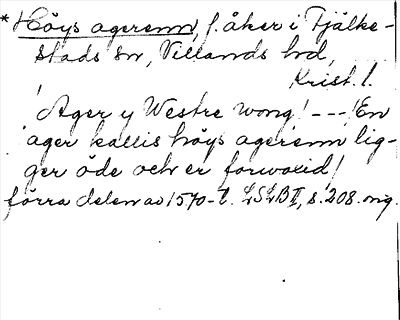 *Höys agerenn, f. åker i Fjälke-
stads sn, Villands hd,
Krist. l.
"Ager y Westre wong! - - - ! En
ager kallis höys agerenn lig-
ger öde och er forwoxid!
förra delen av 1570-t. LSLB II, s. 208. mg.